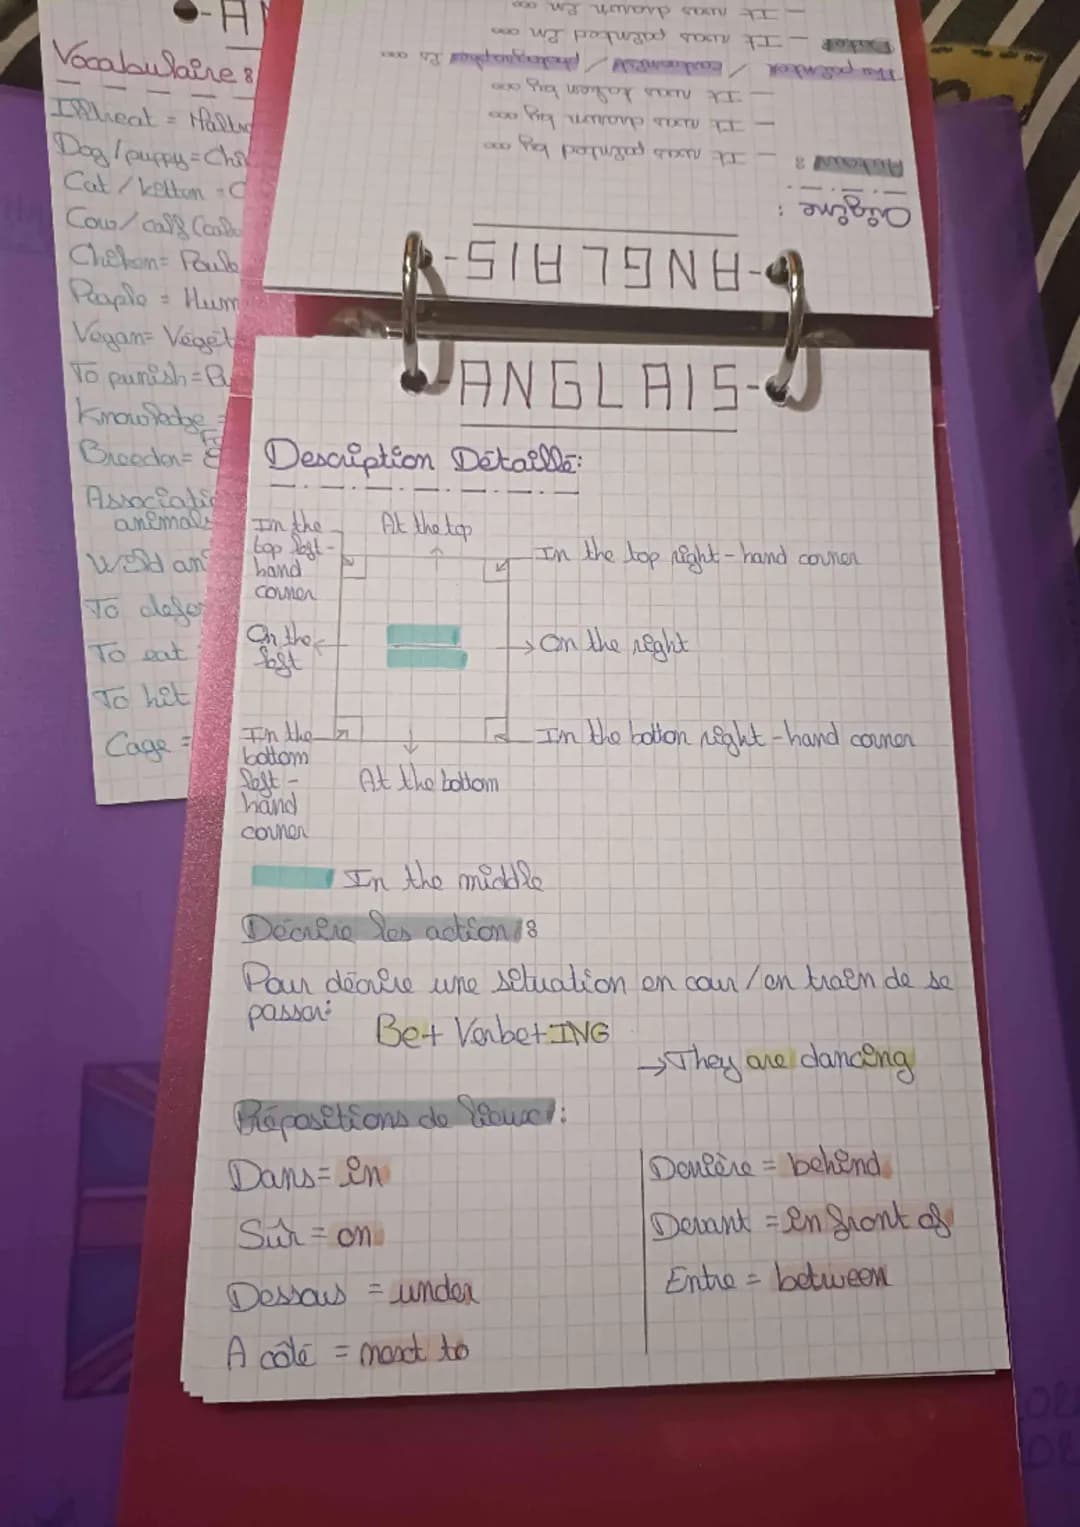 Vocabulaire :
Illtreat = Maltra
Dog / puppy = Chi
Cat / kitten = C
Cow / calf (cal
Chiken = Poule
People = Hum
Vegan = Véget
To punish = Pu
Knowledge =
Breeder = É
Associatio
animals
Wild an
To defe
To eat
To hit
Cage =
- It was drawn in ...
Date - It was painted in ...
The painter / cartoonist / photographer is ...
- It was taken by ...
- It was drawn by ...
Auteur : - It was painted by ...
Origine :
-ANGLAIS-
-ANGLAIS-
Description Détaillé:
In the top left-hand corner
At the top
In the top right-hand corner
On the left
On the right
In the bottom left-hand corner
At the bottom
In the botton right-hand corner
In the middle
Décrire les action :
Pour décrire une situation en cour / en train de se
passer:
Be + Verbe + ING
→ They are dancing
Prépositions de lieux :
Dans = in
Sûr = on
Dessous = under
A côté = next to
Derrière = behind
Devant = in front of
Entre = between